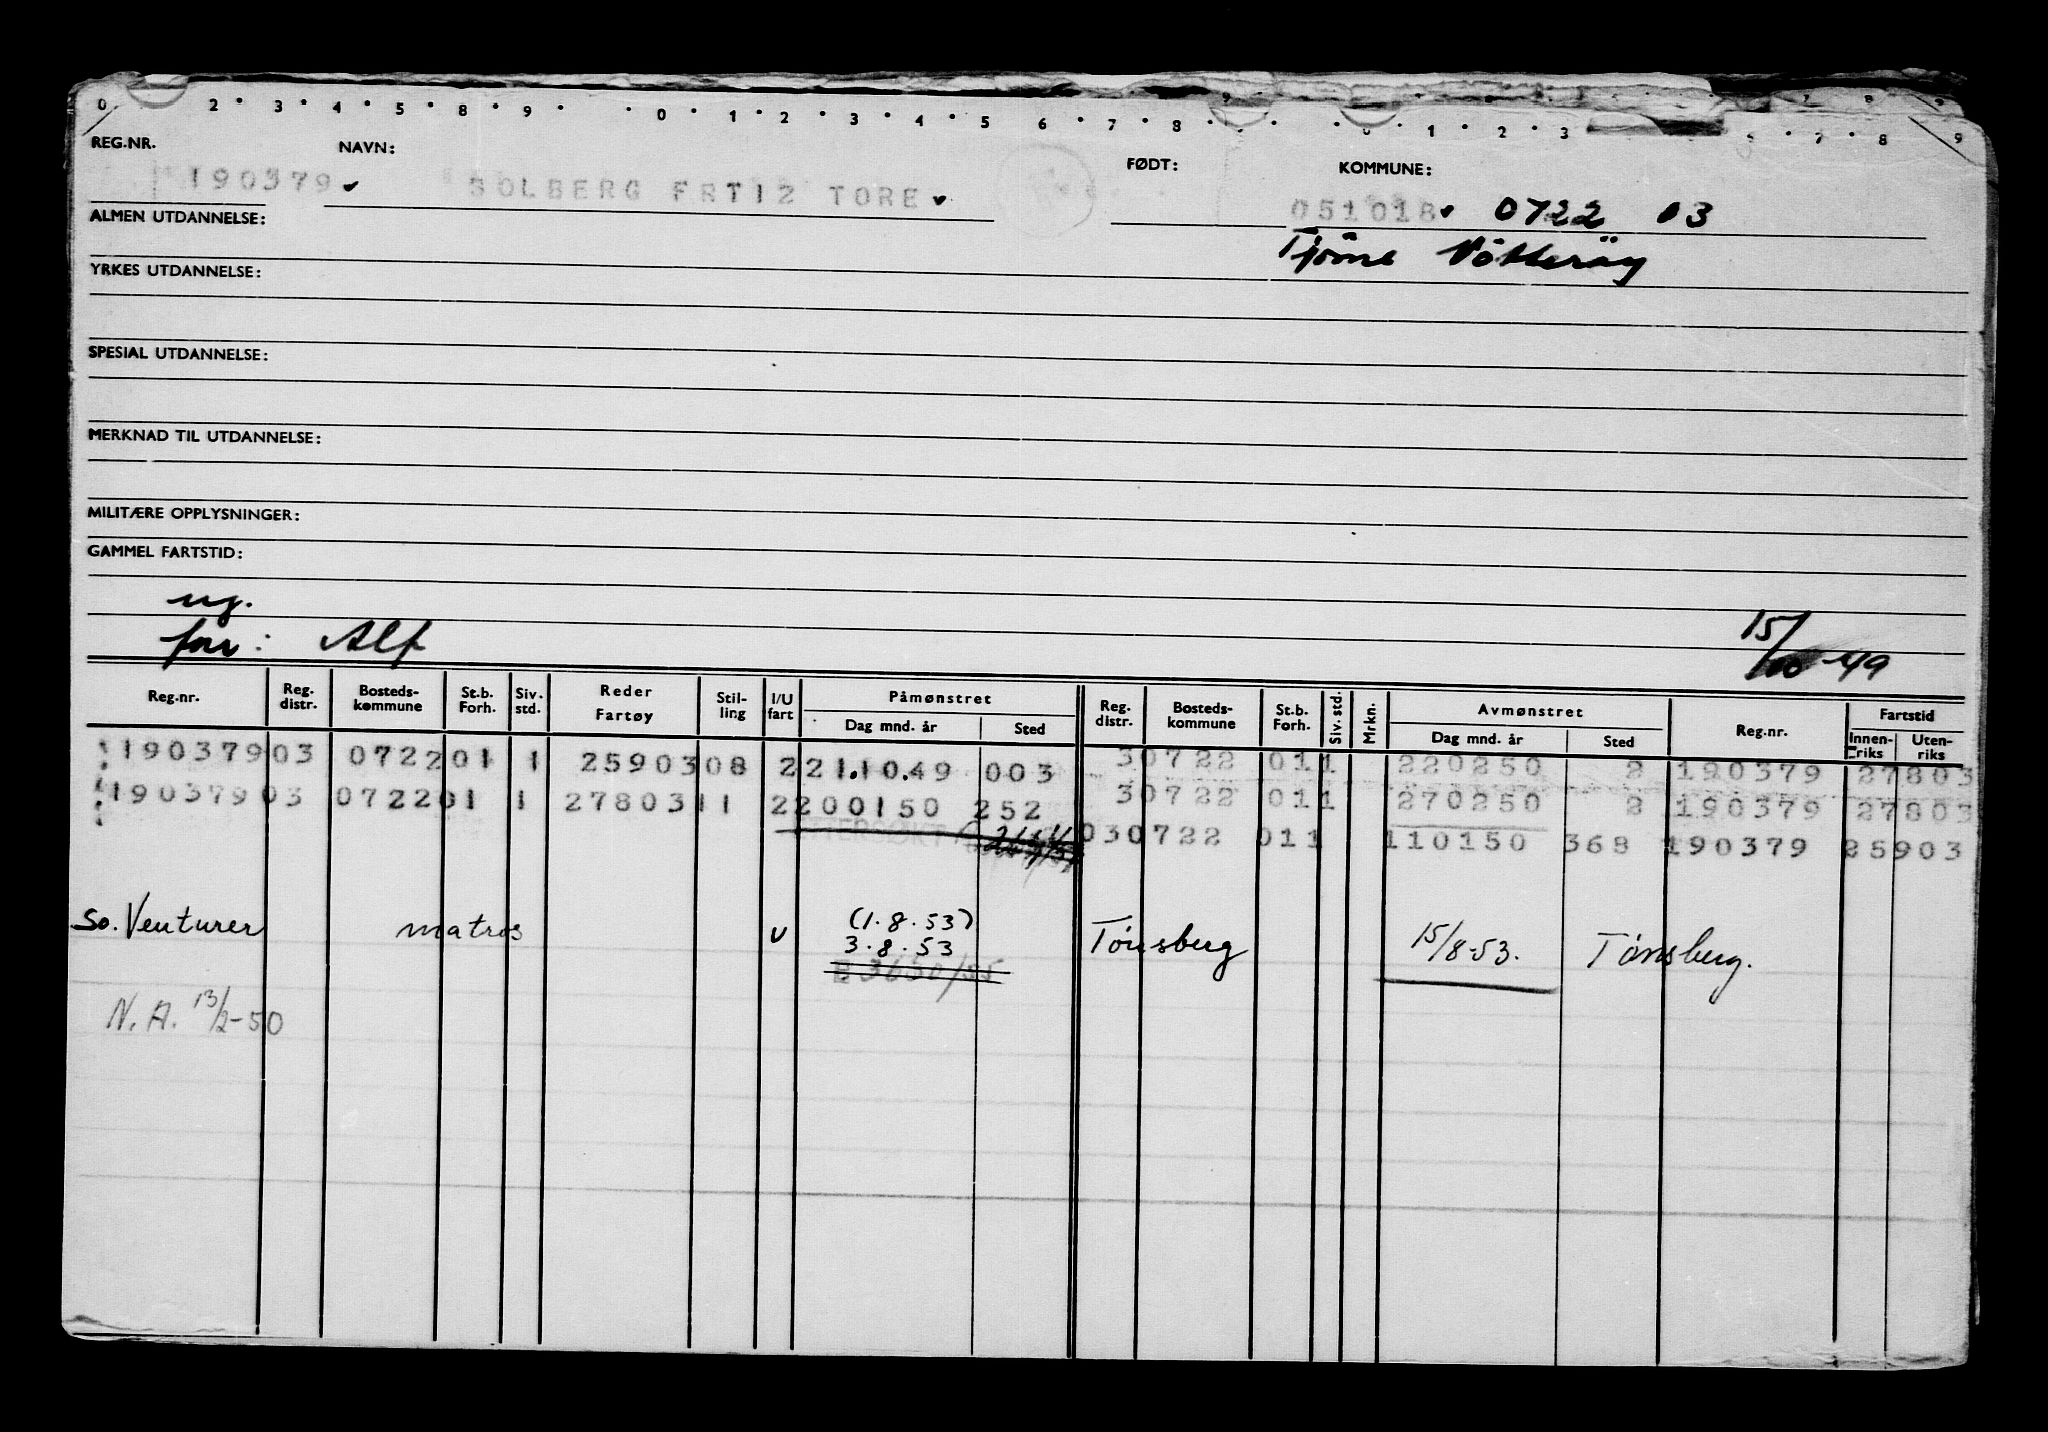 0 2 • 3 • 4 • 5 • 8 • 9 • • 0 • 1 • 2 • 3 • 4 • 5 6 • 7 • 8 • • 1 • 2 • 3 6 • 7 • 8 9
REG.NR. NAVN: FØDT: KOMMUNE:
190379 SOLBERG FRTI2 TORE 051018 0722 03
ALMEN UTDANNELSE: Tjöme
YRKES UTDANNELSE:
SPESIAL UTDANNELSE:
MERKNAD TIL UTDANNELSE:
MILITÆRE OPPLYSNINGER:
GAMMEL FARTSTID:
ug.
far: Alf 15/10-49
Reg.nr. Reg. distr. Bosteds-kommune St.b. Forh. Siv. std. Reder Fartøy Stil-ling I/U fart Påmønstret Dag mnd. år Sted Reg. distr. Bosteds-kommune St.b. Forh. Siv. std. Mrkn. Avmønstret Dag mnd. år Sted Reg.nr. Fartstid Innen-riks Uten-riks
190379 03 0722 01 1 25903 08 2 21.10.49 003 30722 01 1 220250 2 190379 27803
190379 03 0722 01 1 27803 11 2 200150 252 30722 01 1 270250 2 190379 27803
030722 011 110150 368 190379 25903
So. Venturer matros U (1.8.53) Tönsberg 15/8-53. Tönsberg.
3.8.53
E 3650/55
N.A. 13/2-50